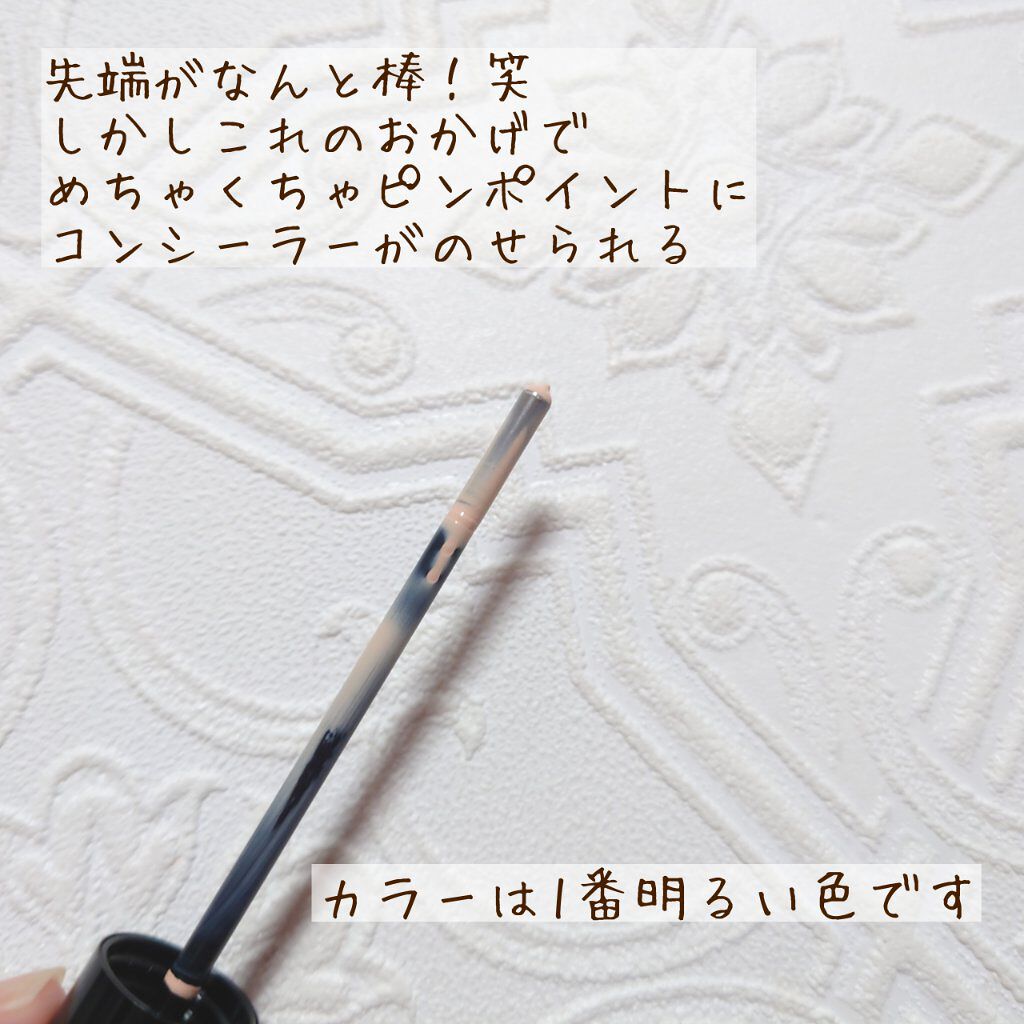 先端がなんと棒！笑
しかしこれのおかげで
めちゃくちゃピンポイントに
コンシーラーがのせられる
カラーは1番明るい色です